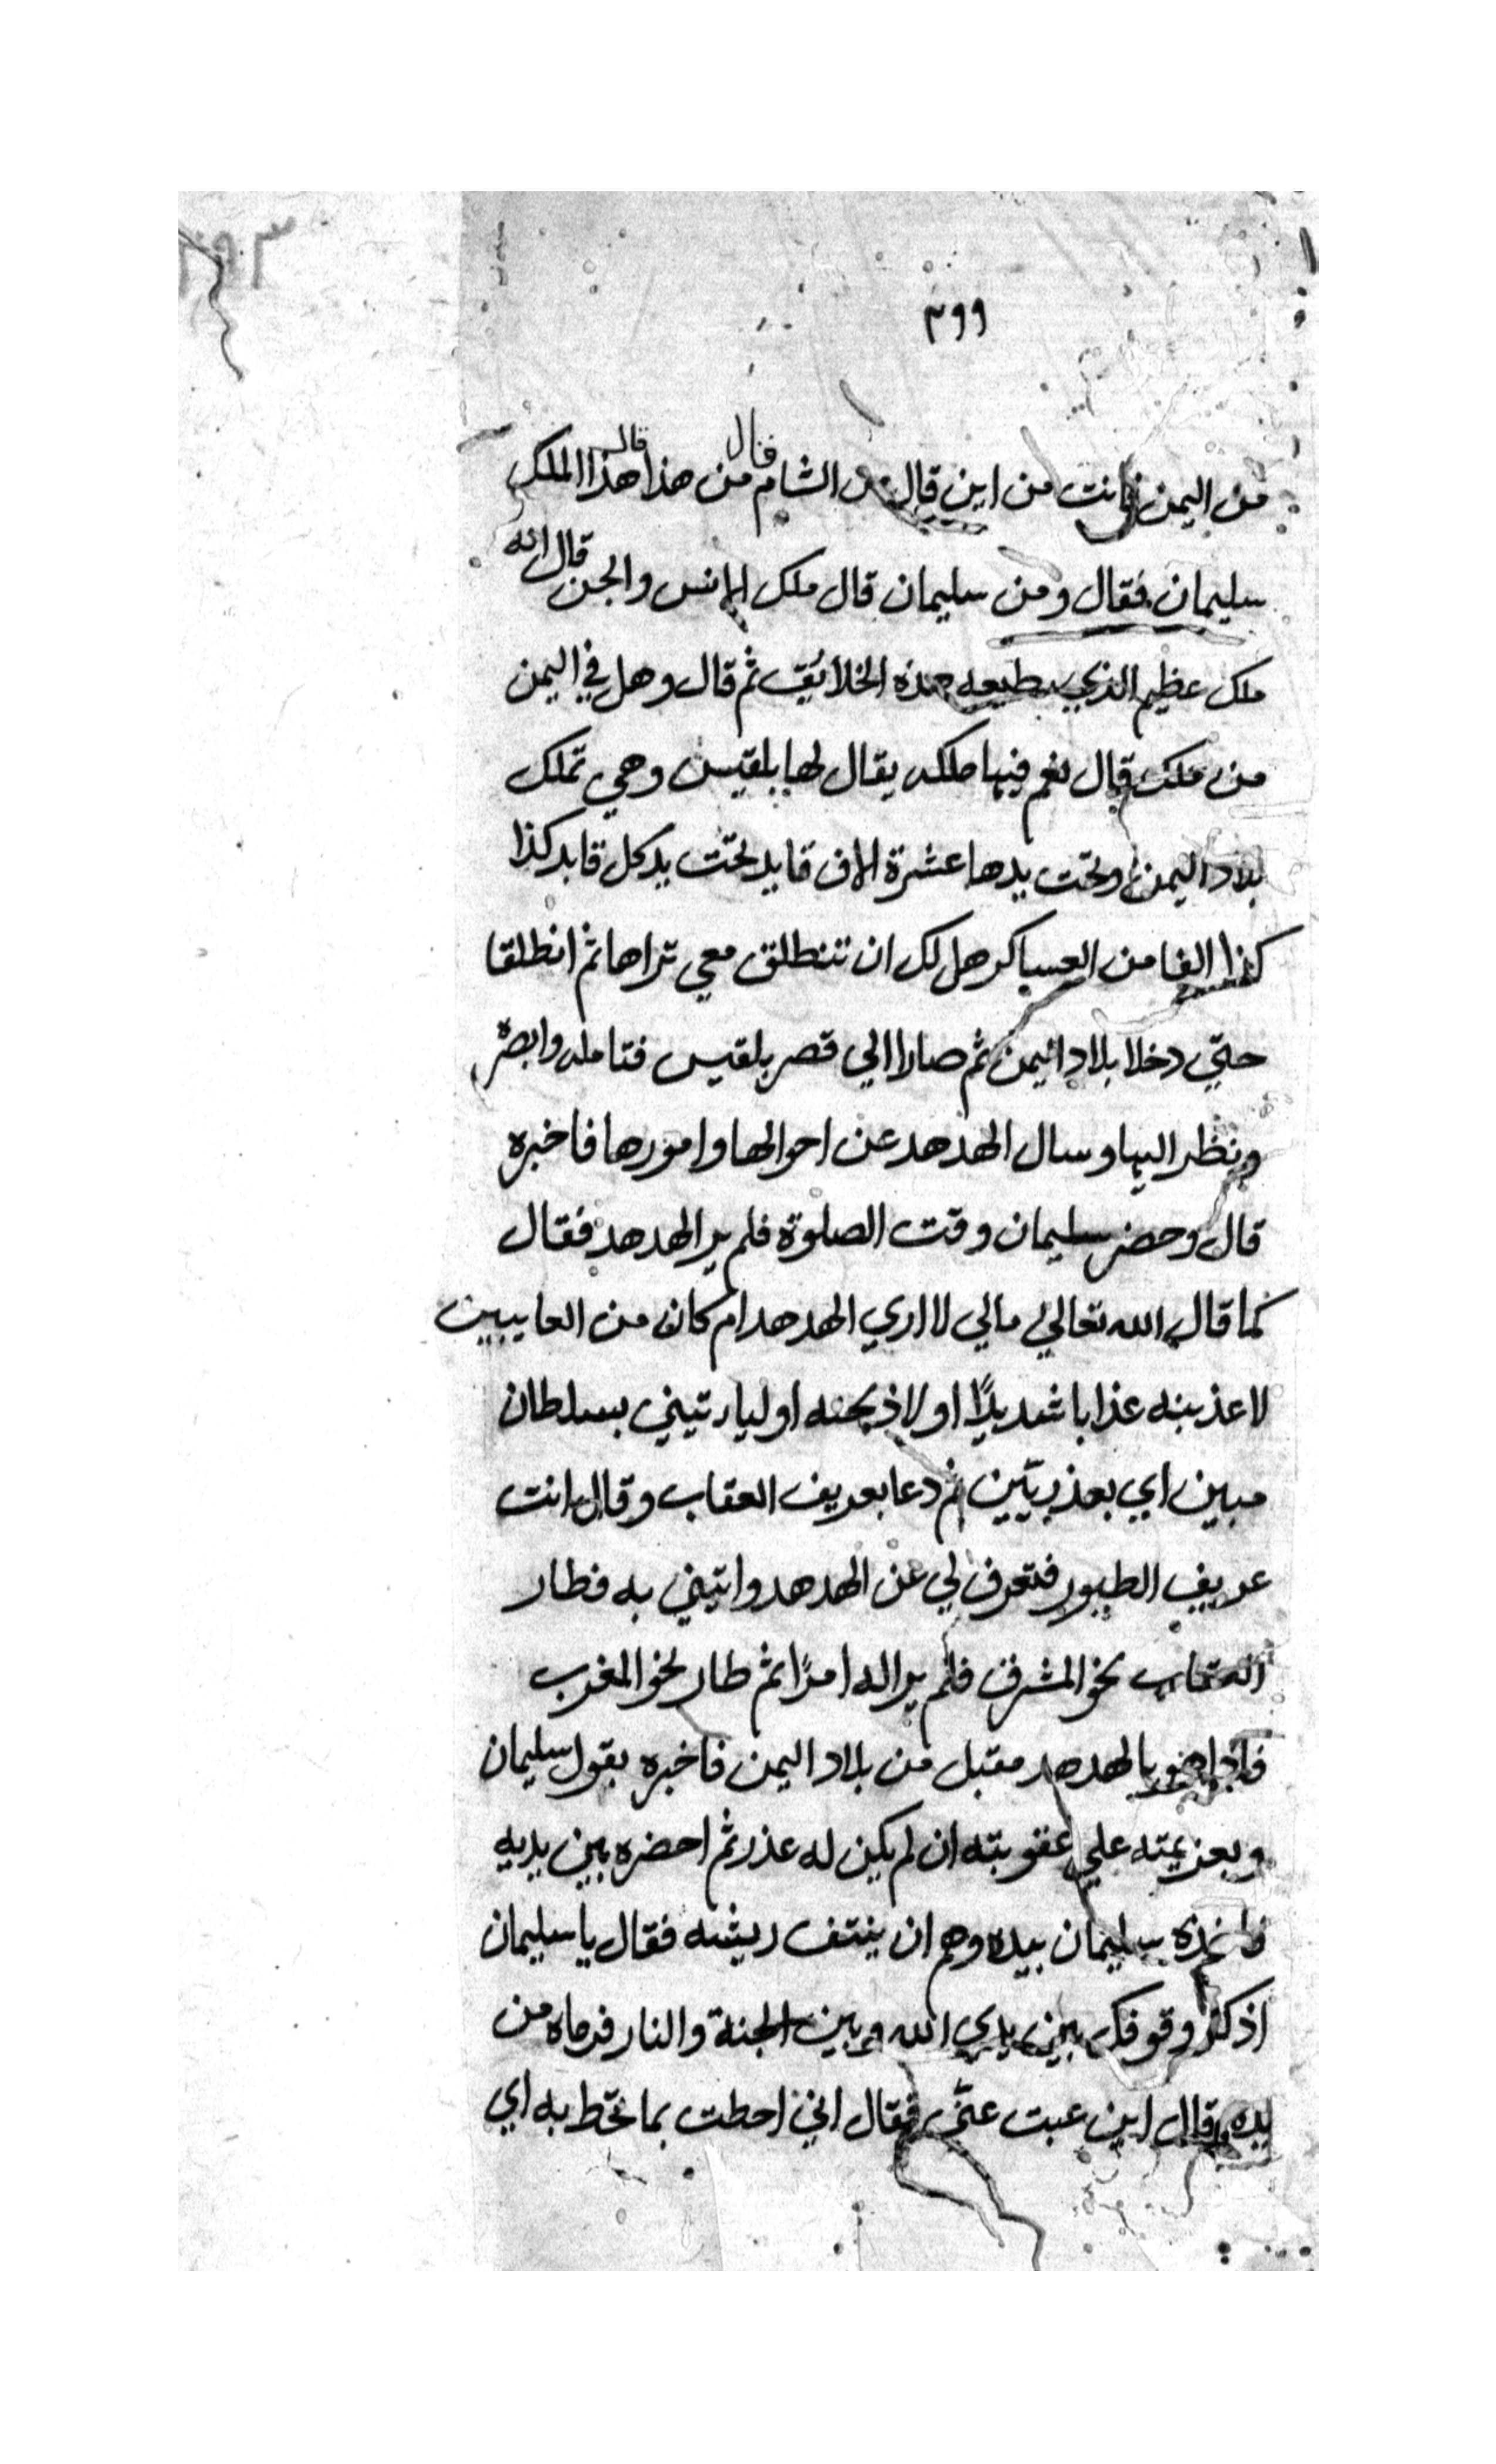 ٢٩٩
من اليمن فانت من اين قال من الشام قال من هذا قال هذا الملك
سليمان فقال ومن سليمان قال ملك الانس والجن قال انه
ملك عظيم الذي يطيعه هذه الخلائق ثم قال وهل في اليمن
من ملك قال نعم فيها ملكه يقال لها بلقيس وهي تملك
بلاد اليمن وتحت يدها عشرة الاف قايد تحت يد كل قايد كذا
كذا الفا من العساكر هل لك ان تنطلق معي تراها ثم انطلقا
حتي دخلا بلاد اليمن ثم صارا الي قصر بلقيس فتامله وابصره
ونظر اليها وسال الهدهد عن احوالها وامورها فاخبره
قال وحضر سليمان وقت الصلوة فلم ير الهدهد فقال
كما قال الله تعالي مالي لا اري الهدهد ام كان من الغايبين
لاعذبنه عذابا شديدًا او لاذبحنه او لياءتيني بسلطان
مبين اي بعذر بيّن ثم دعا بعريف العقاب وقال انت
عريف الطيور فتعرف لي عن الهدهد واتيني به فطار
العقاب نحو المشرق فلم ير اله امرًا ثم طار نحو المغرب
فاذا هو بالهدهد مقبل من بلاد اليمن فاخبره بقول سليمان
وبعزيمته علي عقوبته ان لم يكن له عذر ثم احضره بين يديه
فاخذه سليمان بيده وهم ان ينتف ريشه فقال يا سليمان
اذكر وقوفك بين يدي الله وبين الجنة والنار فرماه من
يده وقال اين غبت عنّي فقال اني احطت بما تحّط به اي